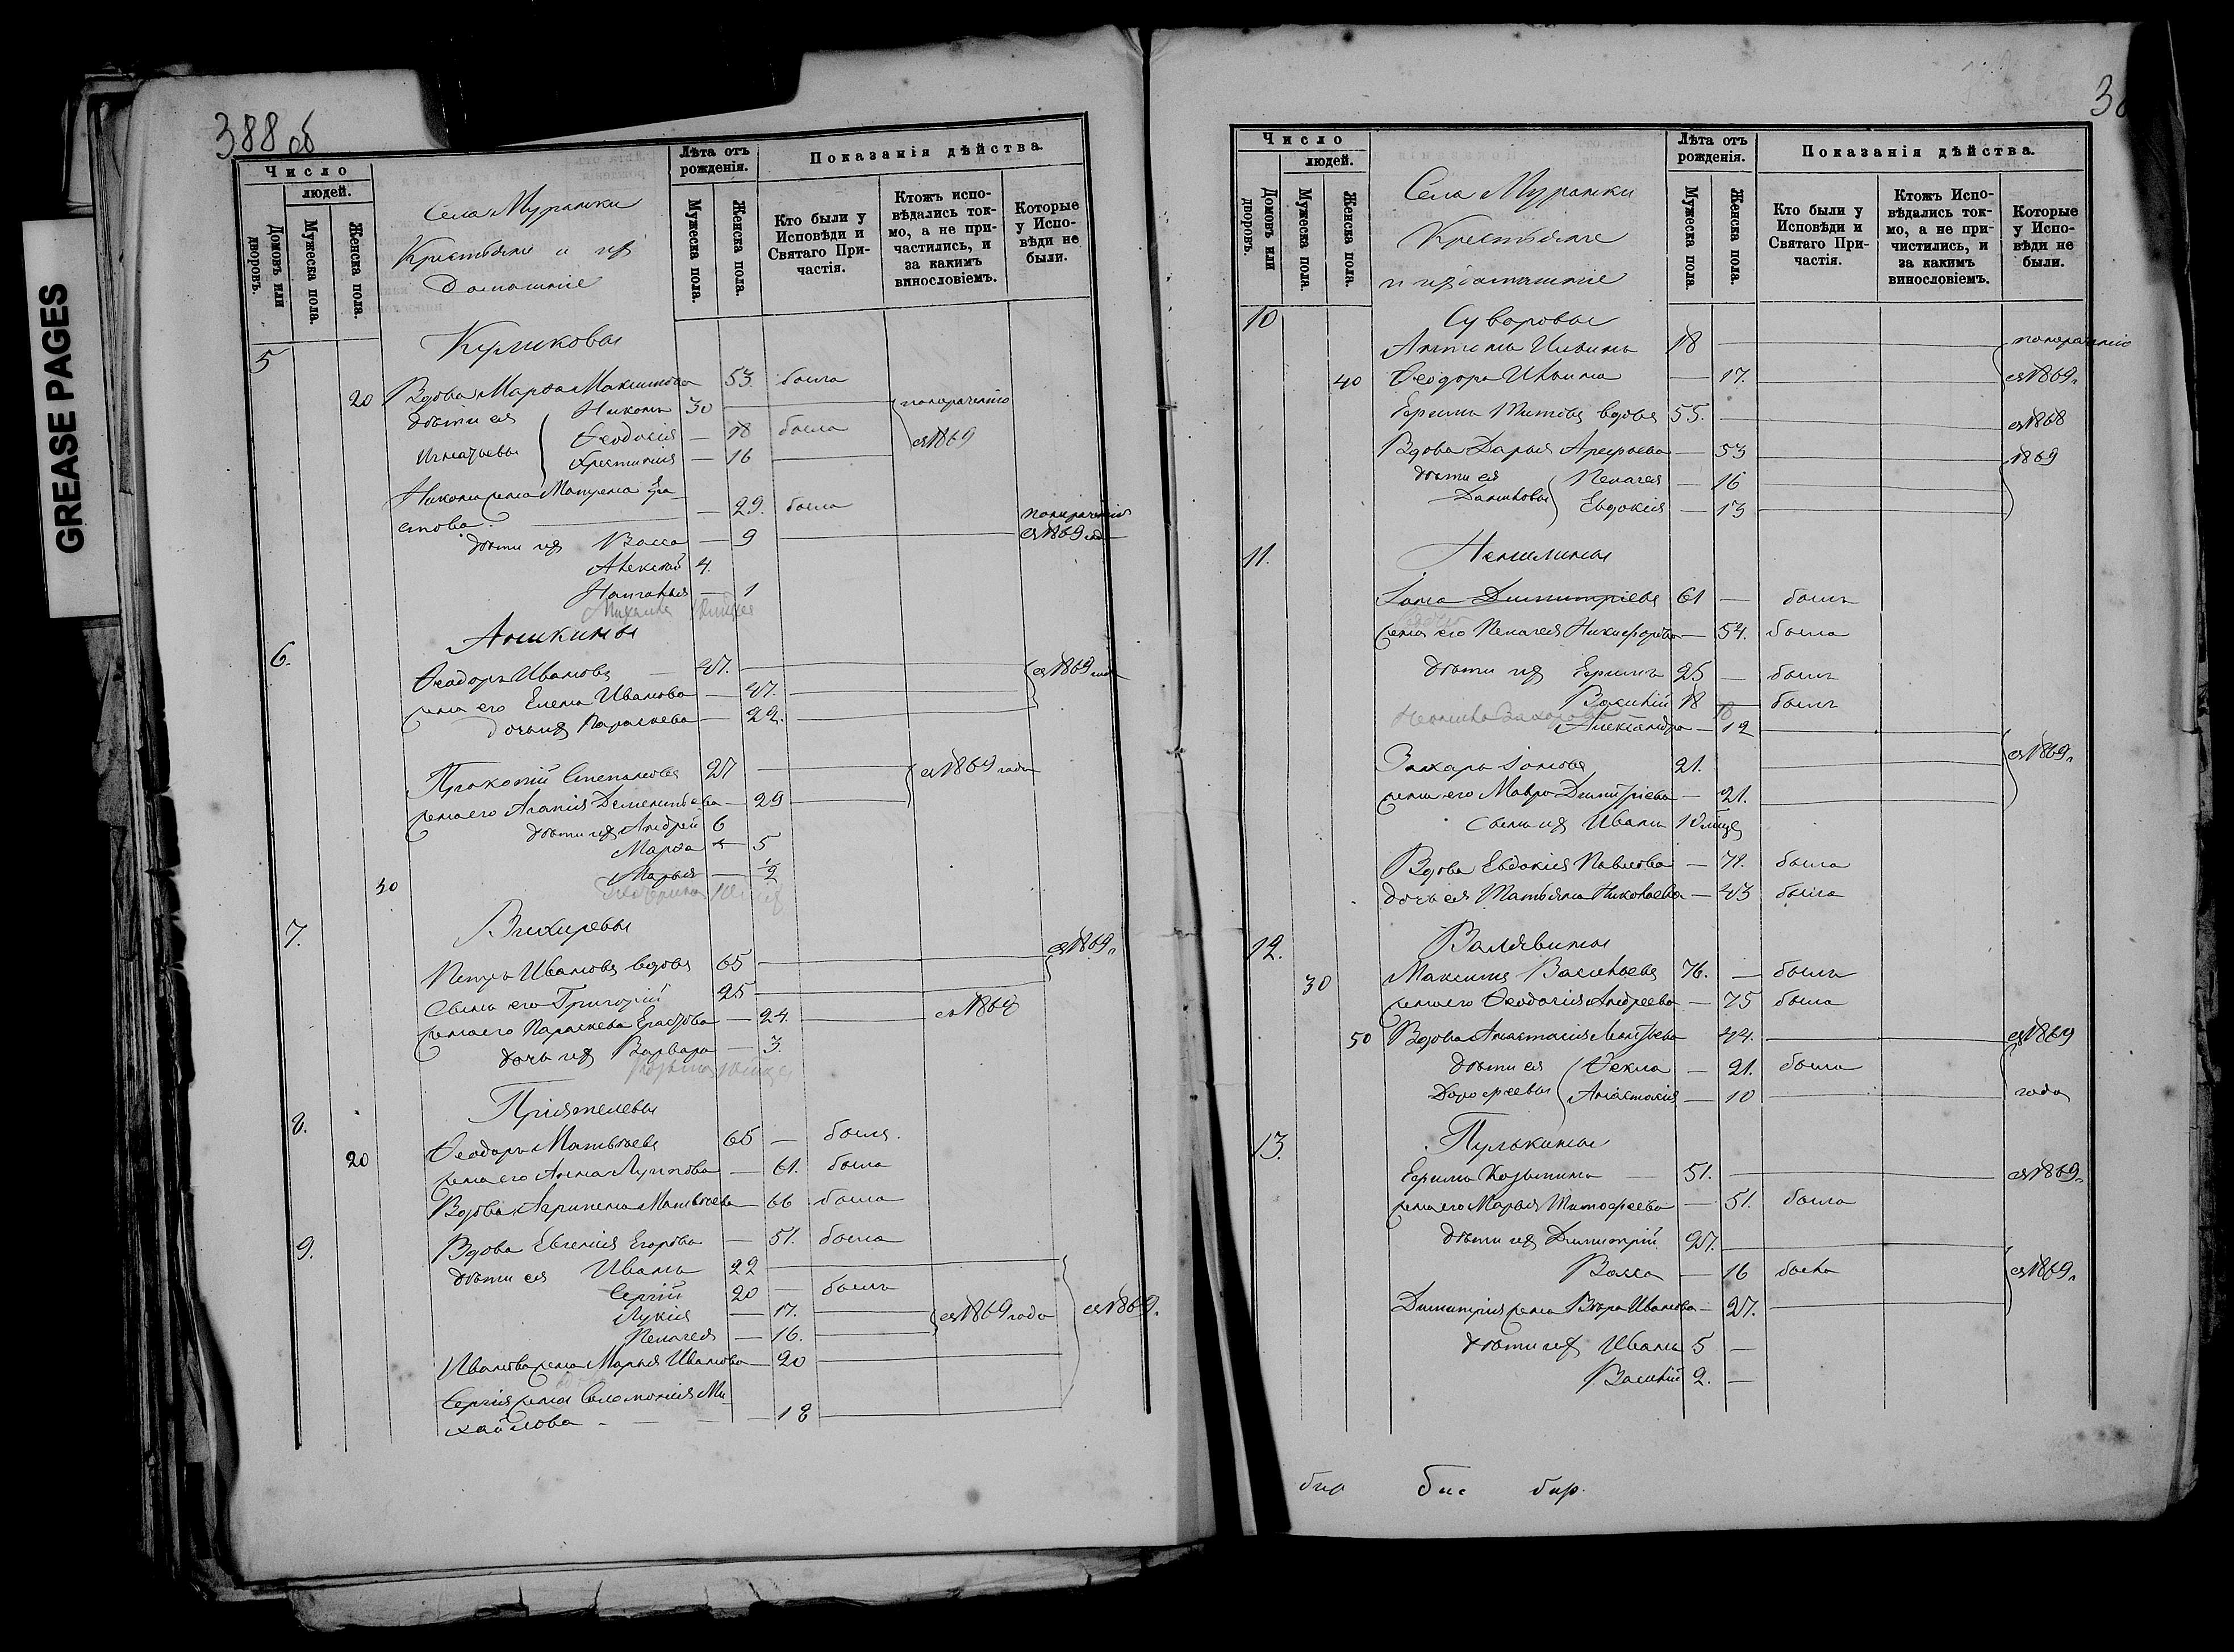 GREASE PAGES
388 об
Число
людей.
Домовъ или дворовъ.
Мужеска пола.
Женска пола.
Села Муранки
Крестьяне и ихъ
Домашніе
Лѣта отъ рожденія.
Мужеска пола.
Женска пола.
Показанія дѣйства.
Кто были у Исповѣди и Святаго Причастія.
Ктожъ исповѣдались токмо, а не причастились, и за какимъ винословіемъ.
Которые у Исповѣди не были.
5 Куликовы
20 Вдова Марѳа Максимова 53 была
дѣти ея Никонъ 30
Игнатьевы Ѳеодосія — 18 была съ 1869
Христинія — 16
Никона жена Матрена Ера-
стова — 29. была
дѣти ихъ Васса — 9 съ 1869 года
Алексѣй 4.
Наталья — 1
Аникины
6. Ѳеодоръ Ивановъ 47. съ 1869 года
жена его Елена Иванова — 47.
дочь ихъ Параскева — 22.
Прокопій Степановъ 27 съ 1869 года
жена его Агапія Дементьева — 29
дѣти ихъ Андрей 6
Марѳа — 5
30 Марья — ½
7. Вихиревы
Петръ Ивановъ вдовъ 65 съ 1869 г.
Сынъ его Григорій 25
жена его Параскева Ерастова — 24.
дочь ихъ Варвара — 3.
Пріятелевы
8. Ѳеодоръ Матвѣевъ 65 — былъ.
20 жена его Анна Луппова — 61. была
Вдова Агрипена Матвѣева — 66 была
9. Вдова Евгенія Егорова — 51. была
дѣти ея Иванъ 22
Сергій 20 — былъ
Лукія — 17. съ 1869 года съ 1869.
Пелагея — 16.
Иванова жена Марья Иванова — 20
Сергія жена Соломонія Ми-
хайлова — 18
Число
людей.
Домовъ или дворовъ.
Мужеска пола.
Женска пола.
Села Муранки
Крестьяне
и ихъ домашніе
Лѣта отъ рожденія.
Мужеска пола.
Женска пола.
Показанія дѣйства.
Кто были у Исповѣди и Святаго Причастія.
Ктожъ Исповѣдались токмо, а не причистились, и за какимъ винословіемъ.
Которые у Исповѣди не были.
10 Суваровы
Антипъ Ильинъ 18
40 Ѳеодора Ильина — 17. съ 1869 г.
Ефимъ Титовъ вдовъ 55. съ 1868
Вдова Дарья Арефьева — 53 1869
дѣти ея Пелагея — 16
Даниловы Евдокія — 13
11.
Іона Димитріевъ 61 — былъ
жена его Пелагея Никифорова — 54. была
дѣти ихъ Ефимъ 25 — былъ
Василій 18 — былъ
Александра — 12
Захаръ Іоновъ 21. съ 1869 г.
жена его Мавра Димитріева — 21.
сынъ ихъ Иванъ
Вдова Евдокія Павлова — 71. была
дочь ея Татьяна Николаева — 43 была
12. Валявины
30 Максимъ Васильевъ 76. — былъ
жена его Ѳеодосія Андреева — 75 была
50 Вдова Анастасія Леонтьева 44. съ 1869
дѣти ея Ѳекла — 21. была
Дорофеевы Анастасія — 10 года
13. Пулькины
Ефимъ Козьминъ 51. съ 1869 г.
жена его Марья Тимофеева — 51. была
дѣти ихъ Димитрій 27.
Васса — 16 была съ 1869 г.
Димитрія жена Вѣра Иванова — 27.
дѣти ихъ Иванъ 5 —
Василій 2. —